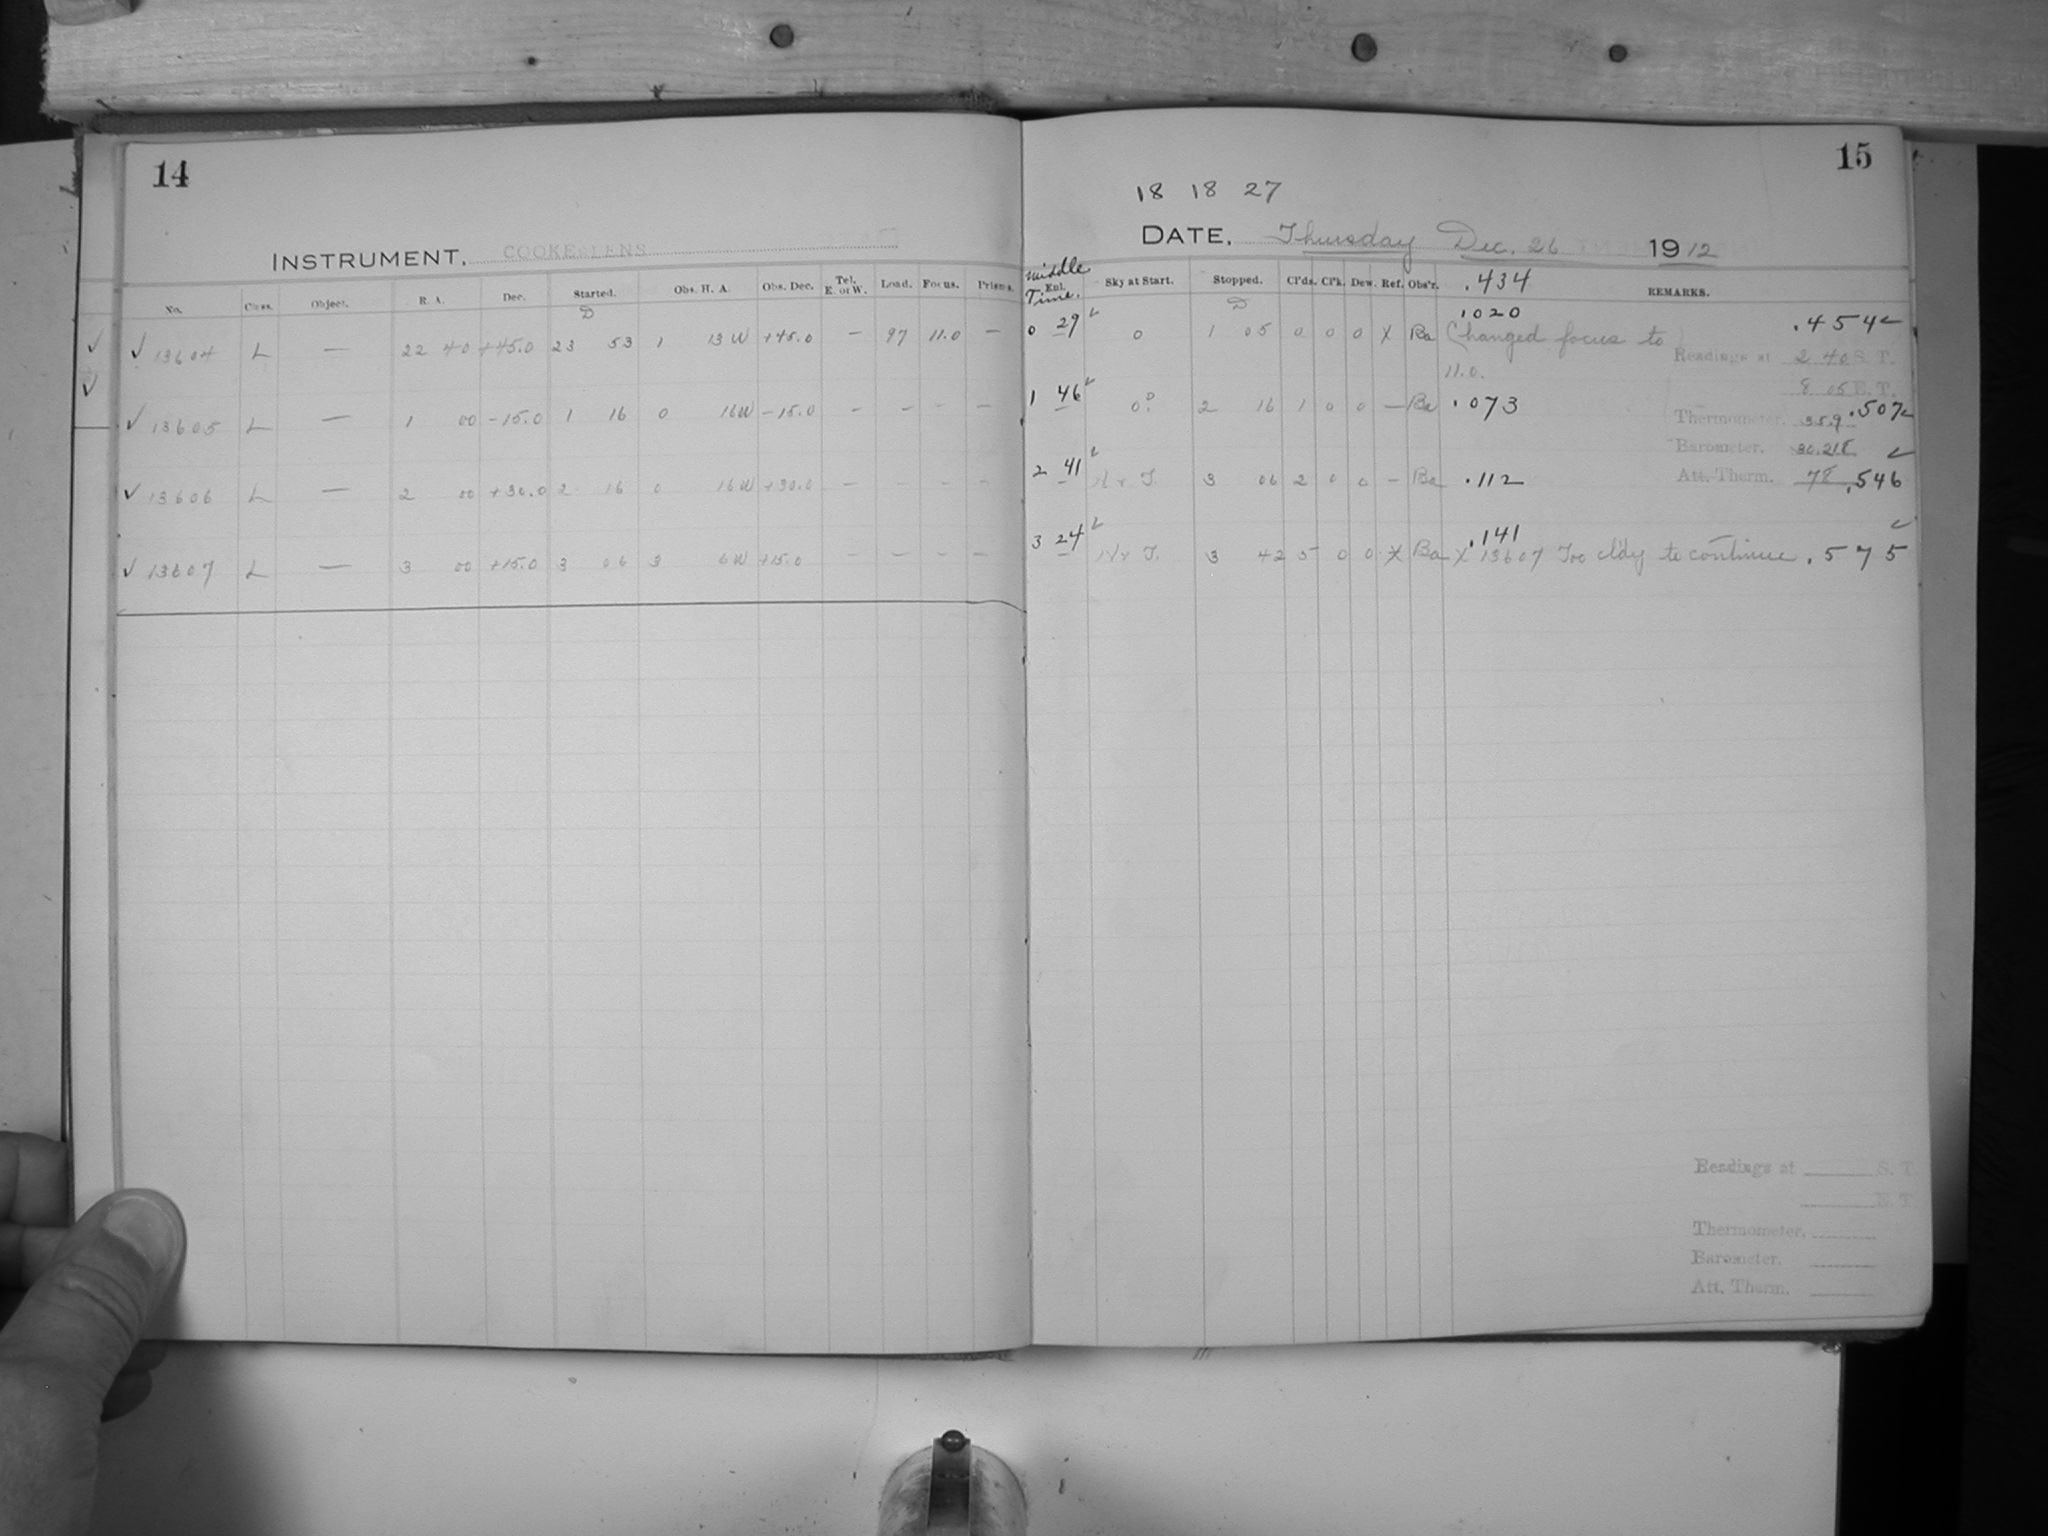 14
INSTRUMENT. COOKE LENS
No. Class. Object. R. A. Dec. Started. Obs. H. A. Obs. Dec. Tel. E. or W. Load. Focus. Prisms.
D
✓ ✓ 13604 L — 22 40 +45.0 23 53 1 13 W +45.0 — 97 11.0 —
✓
✓ 13605 L — 1 00 -15.0 1 16 0 16W -15.0 - - - -
✓ 13606 L — 2 00 +30.0 2 16 0 16W +30.0 - - - -
✓ 13607 L — 3 00 +15.0 3 06 3 6W +15.0 - - - -
15
18 18 27
DATE, Thursday Dec. 26 1912
Middle Time. Exl. Sky at Start. Stopped. Cl'ds. Cl'k. Dew. Ref. Obs'r. .434 REMARKS.
D
.020
0 29 ✓ 0 1 05 0 0 0 X Ba Changed focus to .454 ✓
Readings at 2 40 S. T.
11.0.
8 05 E. T.
1 46 ✓ 0? 2 16 1 0 0 — Ba .073 .507 ✓
Thermometer. 35.9
Barometer. 30.218 ✓
2 41 ✓ 3 06 2 0 0 - Ba .112 .546
Att. Therm. 78
.141 ✓
3 24 ✓ 3 42 5 0 0 X Ba X 13607 Too cl'dy to continue .575
Readings at S. T.
E. T.
Thermometer.
Barometer.
Att. Therm.